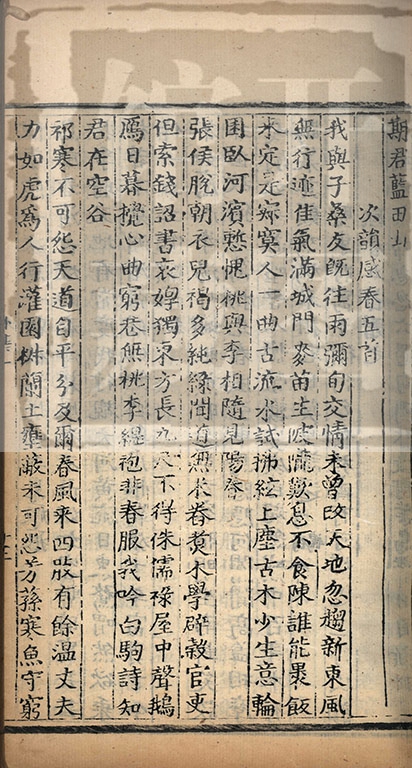 期君藍田山
次韻感春五首
我與子桑友既往雨彌旬交情未曾改天地忽趨新東風
無行迹佳氣滿城門麥苗生陂隴歎息不食陳誰能褁飯
來定是寂寞人一曲古流水試拂絃上塵古木少生意輪
囷臥河濱慙愧桃與李相隨見陽春
張侯脫朝衣兒褐多純綠聞道無米舂煑木學辟穀官吏
但索錢詔書哀惸獨東方長九尺不得侏儒祿屋中聲鵝
鴈日暮攪心曲窮巷無桃李緼袍非春服我吟白駒詩知
君在空谷
祁寒不可怨天道自平分及爾春風來四肢有餘温丈夫
力如虎爲人行灌園樹蘭土壅蔽未可怨芳蓀寒魚守窮